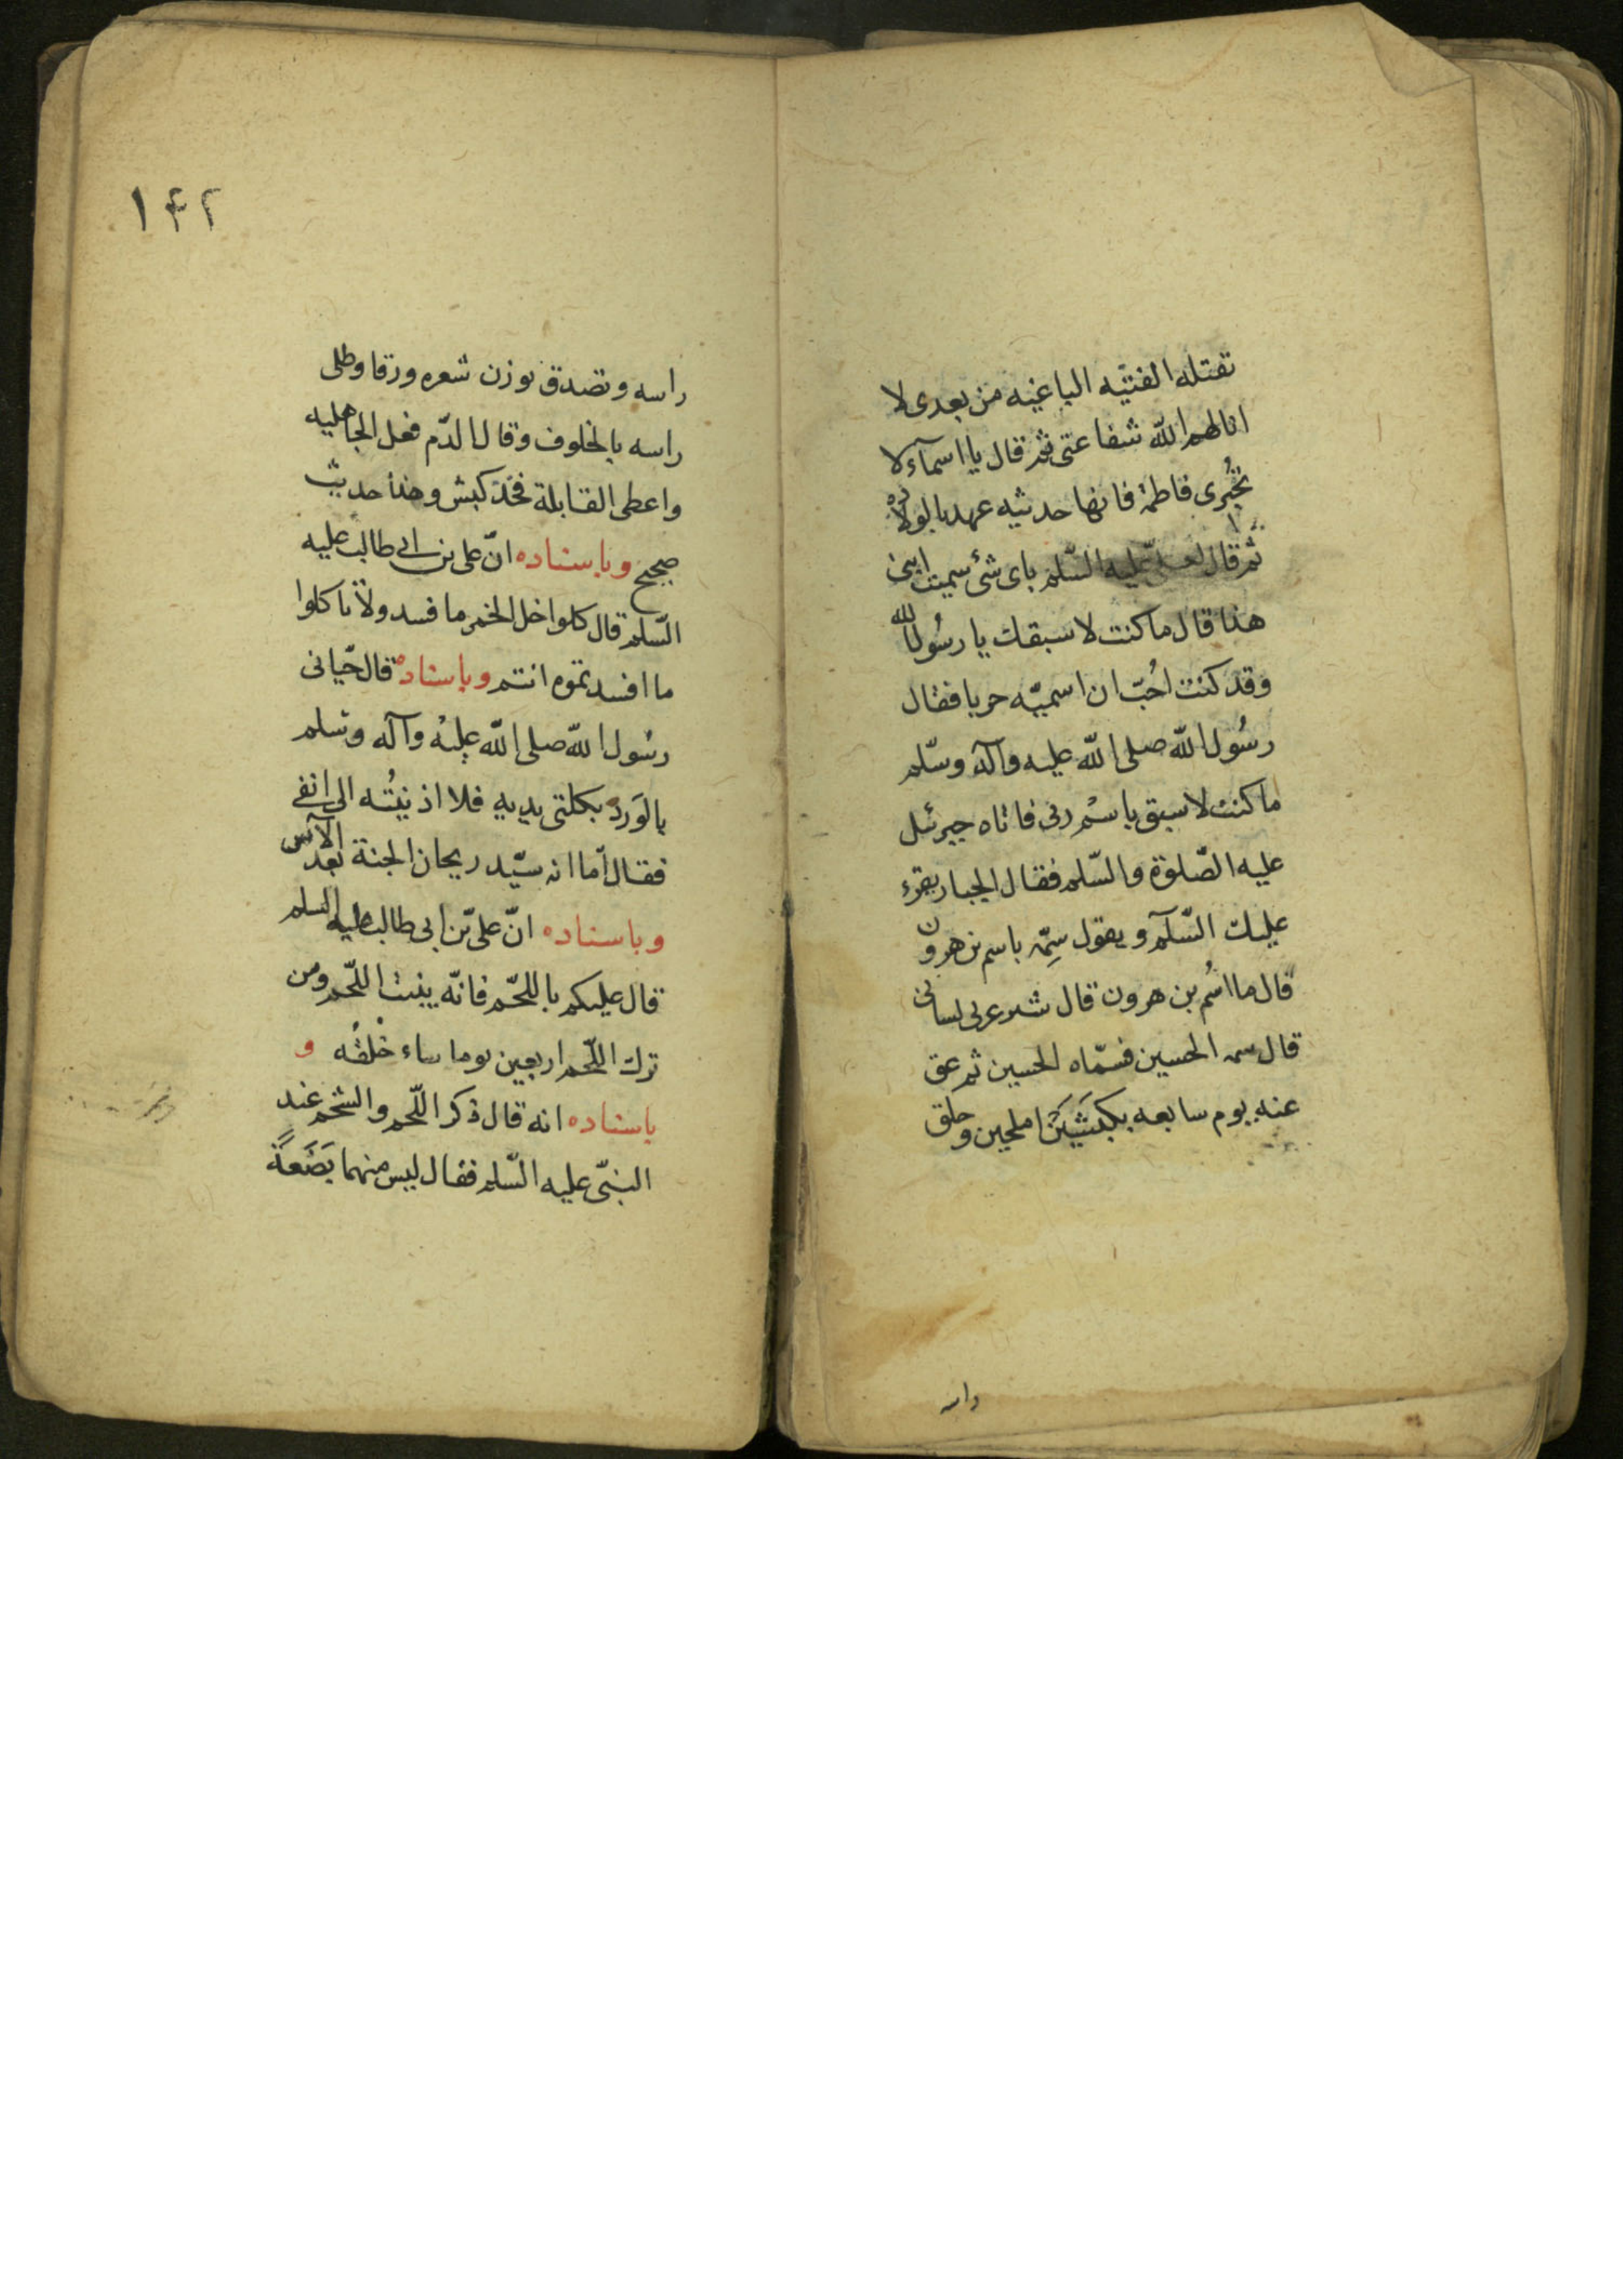 تقتله الفئيه الباغيه من بعدى لا
انالهم الله شفاعتى ثم قال يا اسمآء لا
تخبُرى فاطمة فانها حديثيه عهد بالولاده
ثم قال لعلى عليه السّلم باى شئ سميت ابنى
هذا قال ما كنت لاسبقك يا رسُول الله
وقد كنت احُبّ ان اسميّه حربا فقال
رسُول الله صلى الله عليه وآله وسّلم
ما كنت لاسبق باسْم ربى فاتاه جبرئيل
عليه الصّلوة والسّلم فقال الجبار يقرء
عليك السّلآم ويقول سِمّه باسم بن هرون
قال ما اسُم بن هرون قال شبر عربى لسانى
قال سمه الحسين فسمّاه الحسين ثم عق
عنه يوم سابعه بكبشَيَن املحين وحلق
راسه
١۴٢
راسه وتصدق بوزن شعره ورقا وطلى
راسه بالخلوف وقال الدّم فعل الجاهليه
واعطى القابلة فخذ كبش وهذا حديث
صحيح وباسناده انّ على بن ابى طالب عليه
السّلم قال كلوا خل الخمر ما فسد ولا تاكلوا
ما افسدتموه انتم وباسناده قال حّيانى
رسُول الله صلى الله عليه وآله وسلم
بالوَرد بكلتى يديه فلا اذنيتُه الى انفى
فقال امّا انه سيّد ريحان الجنة بعد الآس
وباسناده انّ علىّ بن ابى طالب عليه السلم
قال عليكم باللحّم فانّه ينبت اللحّم ومن
ترك اللحّم اربعين يوما ساء خُلقُه و
باسناده انه قال ذكر اللّحم والشحم عند
النبىّ عليه السّلم فقال ليس منهما بَضَعةً